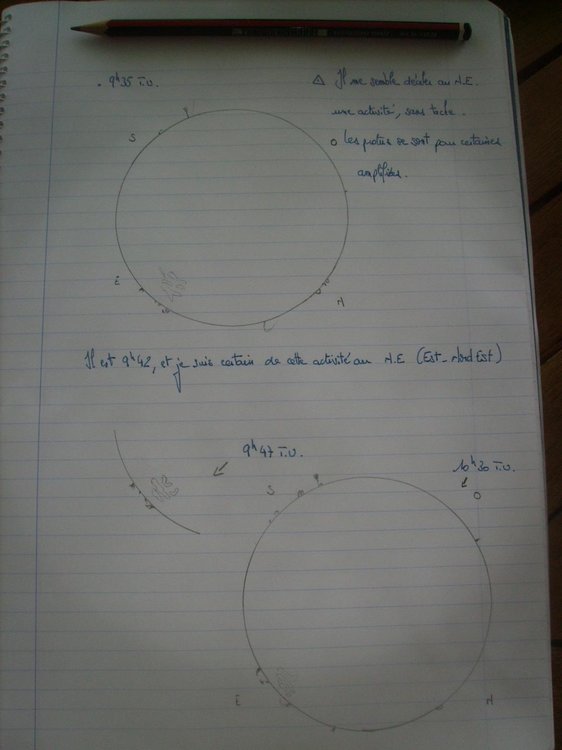 . 9h35 T.U.
⚠ Il me semble déceler au N.E.
une activité, sans tache.
o Les protus se sont pour certaines
amplifiées.
S
E
N
Il est 9h42, et je suis certain de cette activité au N.E (Est-Nord Est)
9h47 T.U.
10h30 T.U.
S
O
E
N